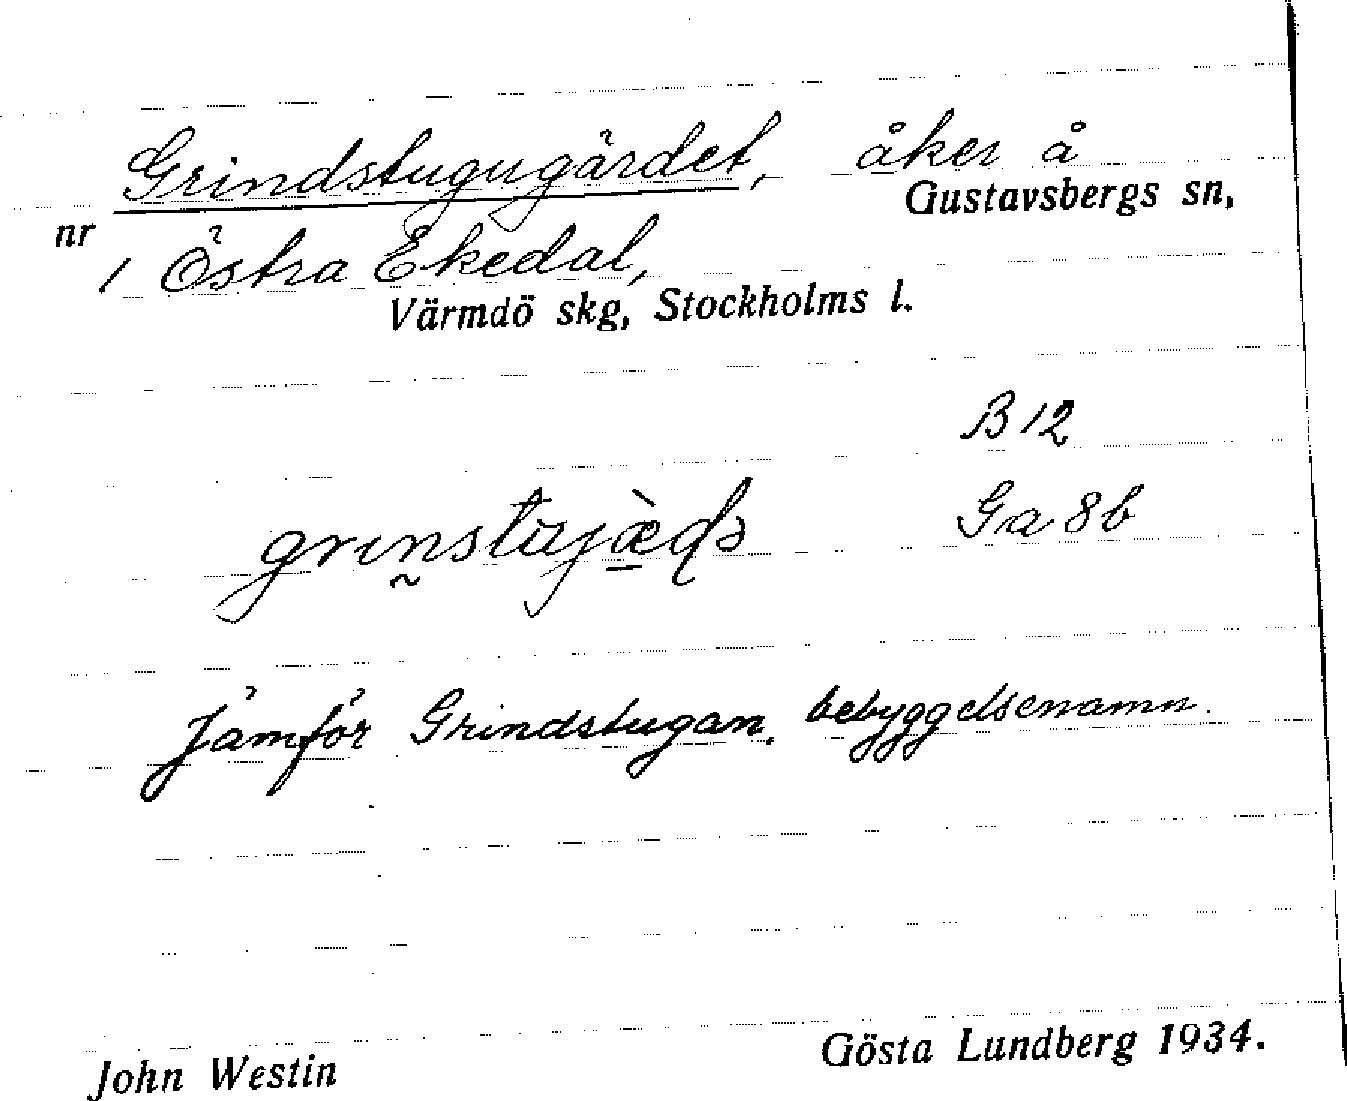 Grindstugugärdet, åker å
Gustavsbergs sn,
nr
1 Östra Ekedal,
Värmdö skg, Stockholms l.
B 12
Ga 8b
Jämför Grindstugan, bebyggelsenamn.
John Westin
Gösta Lundberg 1934.